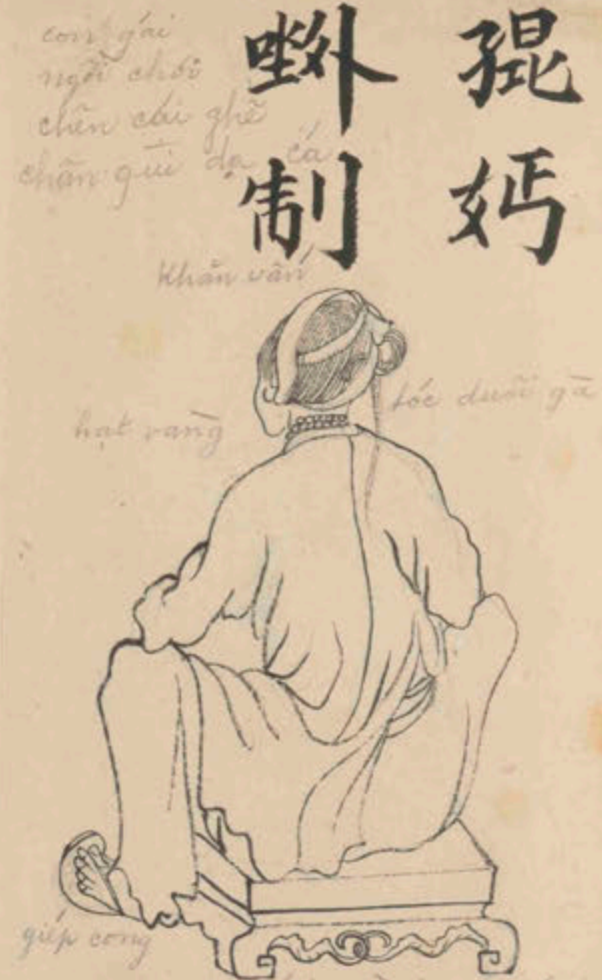 𡥵𡛔
𡎢制
con gái
ngồi chơi
chên cái ghế
chân qùi dạ cá
Khăn vấn
tóc duôi gà
hạt vàng
giép cong